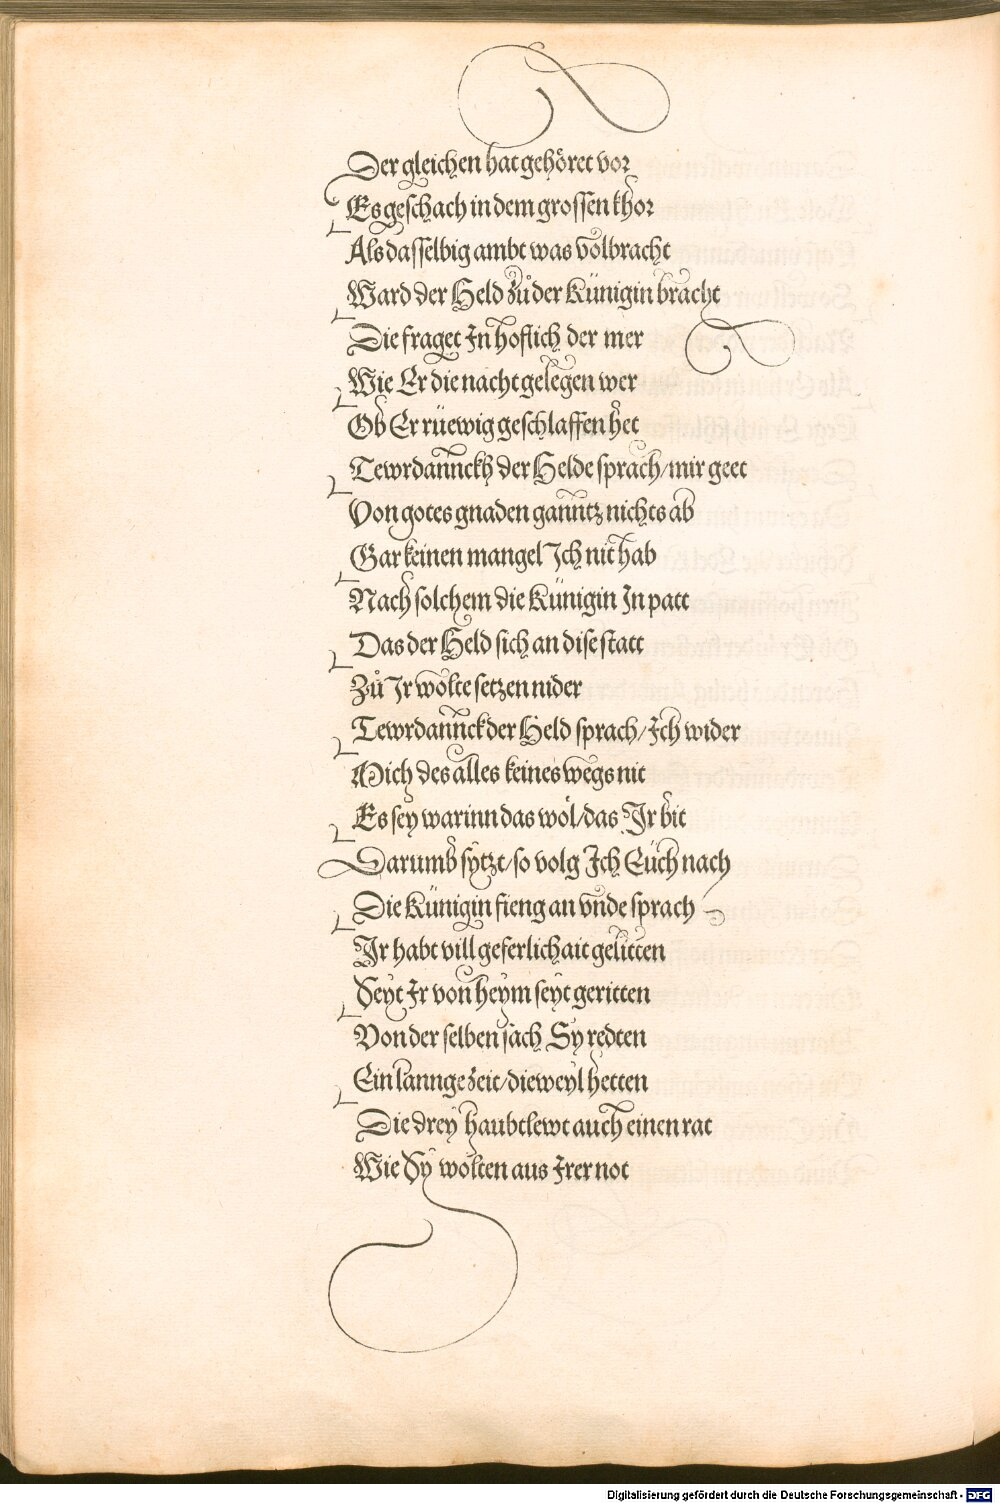 Der gleichen hat gehöret vor
Es geschach in dem grossen khor
Als dasselbig ambt was volbracht
Ward der Held zů der Künigin bracht
Die fraget In hoflich der mer
Wie Er die nacht gelegen wer
Ob Er rüewig geschlaffen het
Tewrdannckh der Helde sprach/mir geet
Von gotes gnaden ganntz nichts ab
Gar keinen mangel Ich nit hab
Nach solchem die Künigin In patt
Das der Held sich an dise statt
Zů Ir wolte setzen nider
Tewrdannck der Held sprach/Ich wider
Mich des alles keines wegs nit
Es sey warinn das wöl/das Ir bit
Darumb sytzt/so volg Ich Euch nach
Die Künigin fieng an vnde sprach
Ir habt vill geferlichait gelitten
Seyt Ir von heym seyt geritten
Von der selben sach Sy redten
Ein lannge zeit/dieweyl hetten
Die drey haubtlewt auch einen rat
Wie Sy wolten aus Irer not
Digitalisierung gefördert durch die Deutsche Forschungsgemeinschaft - DFG